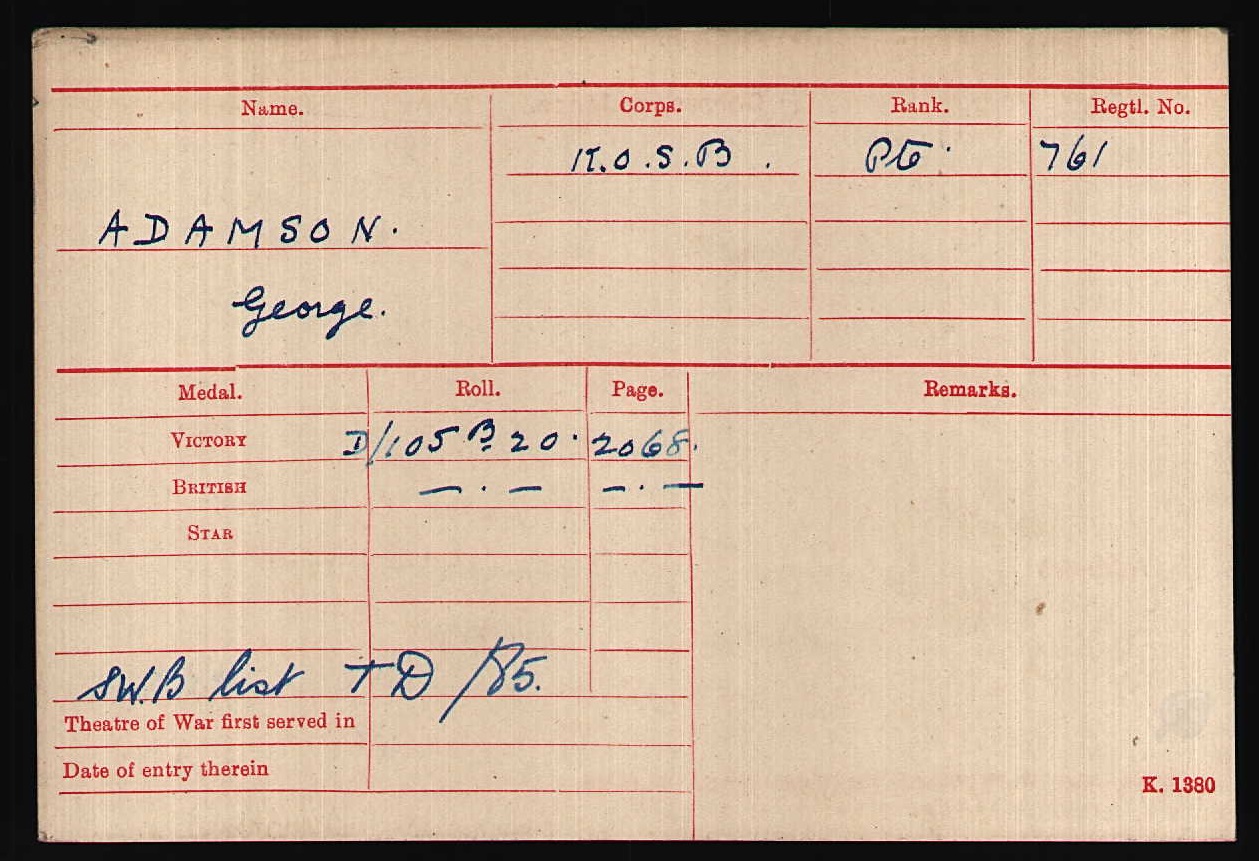 Name. Corps. Rank. Regtl. No.
K.O.S.B. Pte. 761
ADAMSON.
George.
Medal. Roll. Page. Remarks.
VICTORY D/105 B 20. 2068.
BRITISH — . — — . —
STAR
SW.B list TD /85.
Theatre of War first served in
Date of entry therein
K. 1380